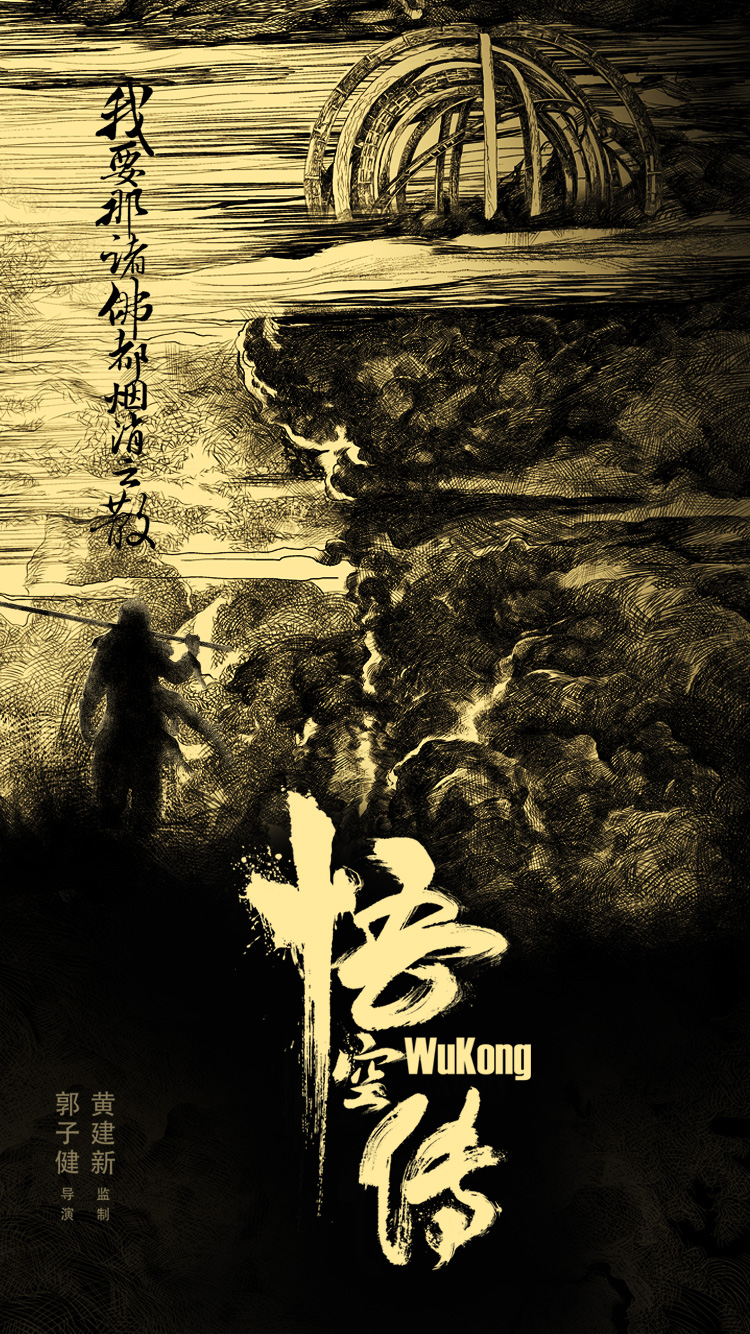 我要那诸佛都烟消云散
悟空传
WuKong
黄建新 监制
郭子健 导演